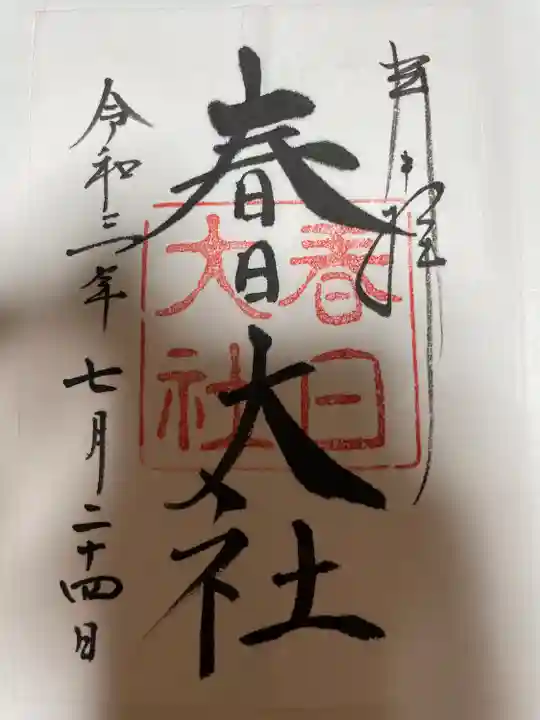 春日大社
春日
大社
令和三年七月二十四日